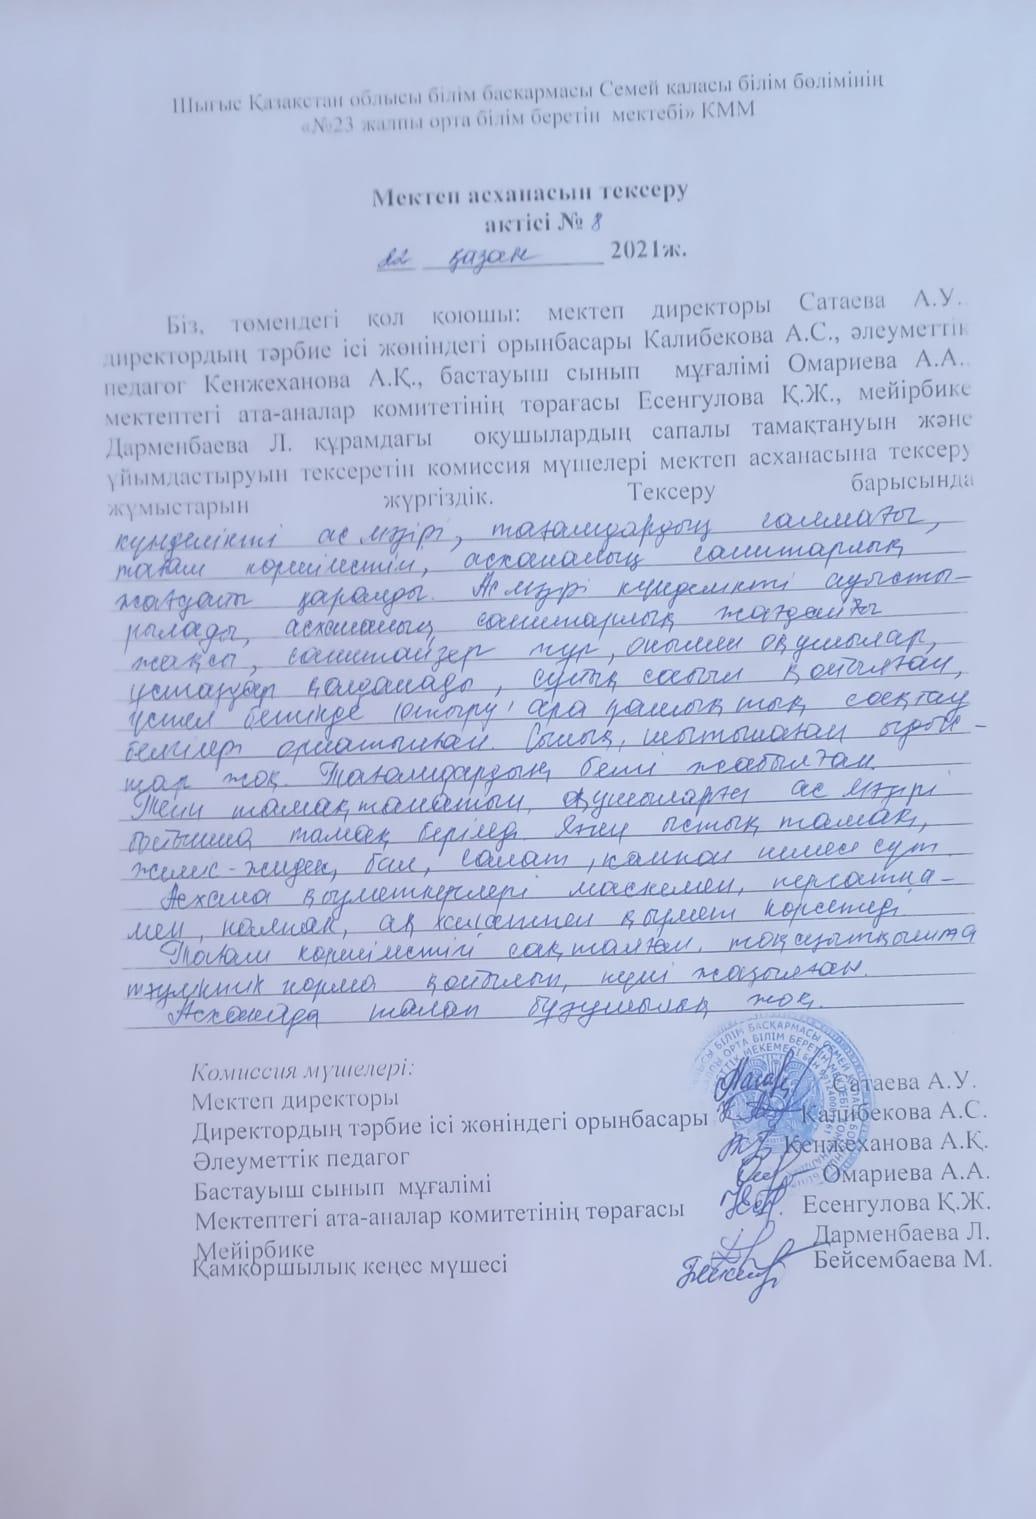 Шығыс Қазақстан облысы білім басқармасы Семей қаласы білім бөлімінің
«№23 жалпы орта білім беретін мектебі» КММ
Мектеп асханасын тексеру
актісі № 8
22 қазан 2021ж.
Біз, төмендегі қол қоюшы: мектеп директоры Сатаева А.У.
директордың тәрбие ісі жөніндегі орынбасары Калибекова А.С., әлеуметтік
педагог Кенжеханова А.Қ., бастауыш сынып мұғалімі Омариева А.А.
мектептегі ата-аналар комитетінің төрағасы Есенгулова Қ.Ж., мейірбике
Дарменбаева Л. құрамдағы оқушылардың сапалы тамақтануын және
ұйымдастыруын тексеретін комиссия мүшелері мектеп асханасына тексеру
жұмыстарын жүргіздік. Тексеру барысында
күнделікті ас мәзірі, тағамдардың салмағы,
тағам көрсілістім, асхананың санитарлық
жағдайы қаралды. Ас мәзірі күнделікті ауысты-
рылады, асхананың санитарлық жағдайы
жақсы, санитайзер тұр, онымен оқушылар,
ұстаздар қолданады, сұйық сабын қойылған,
үстел бетінде отыру, ара қашықтық сақтау
белгілері орнатылған. Сынық, шытынаған ыдыс-
тар жоқ. Тағамдардың беті жабылған
Тегін тамақтанатын оқушыларға ас мәзірі
бойынша тамақ беріледі. Яғни ыстық тамақ,
жеміс-жидек, бал, салат, кампот немесе сүт.
Асхана қызметкерлері маскамен, перчатка-
мен, калпак, ақ халатпен қызмет көрсетеді.
Тағам сақталған, тоңазытқышта
тәуліктік норма қойылып, күні жазылған.
Асханада талап бұзушылық жоқ.
Комиссия мүшелері:
Мектеп директоры Сатаева А.У.
Директордың тәрбие ісі жөніндегі орынбасары Калибекова А.С.
Әлеуметтік педагог Кенжеханова А.Қ.
Бастауыш сынып мұғалімі Омариева А.А.
Мектептегі ата-аналар комитетінің төрағасы Есенгулова Қ.Ж.
Мейірбике Дарменбаева Л.
Қамқоршылық кеңес мүшесі Бейсембаева М.